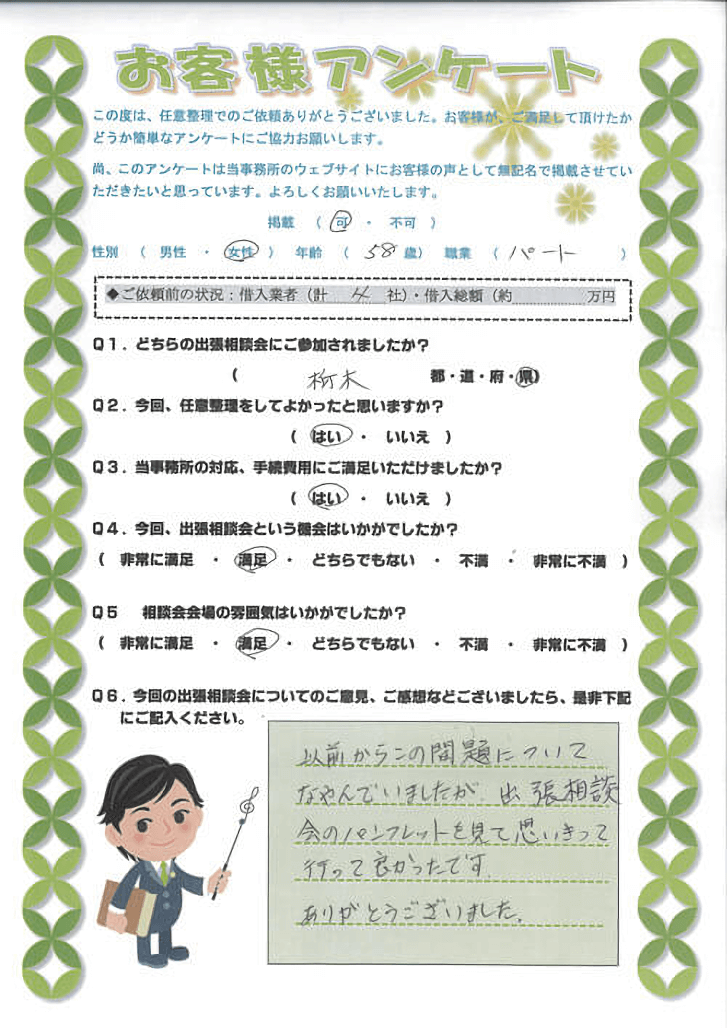 お客様アンケート
この度は、任意整理でのご依頼ありがとうございました。お客様が、ご満足して頂けたか
どうか簡単なアンケートにご協力お願いします。
尚、このアンケートは当事務所のウェブサイトにお客様の声として無記名で掲載させてい
ただきたいと思っています。よろしくお願いいたします。
掲載 ( 可 ・ 不可 )
性別 ( 男性 ・ 女性 ) 年齢 ( 58 歳) 職業 ( パート )
◆ご依頼前の状況:借入業者(計 4 社)・借入総額(約 万円
Q1.どちらの出張相談会にご参加されましたか?
( 栃木 都・道・府・県)
Q2.今回、任意整理をしてよかったと思いますか?
( はい ・ いいえ )
Q3.当事務所の対応、手続費用にご満足いただけましたか?
( はい ・ いいえ )
Q4.今回、出張相談会という機会はいかがでしたか?
( 非常に満足 ・ 満足 ・ どちらでもない ・ 不満 ・ 非常に不満 )
Q5 相談会会場の雰囲気はいかがでしたか?
( 非常に満足 ・ 満足 ・ どちらでもない ・ 不満 ・ 非常に不満 )
Q6.今回の出張相談会についてのご意見、ご感想などございましたら、是非下記
にご記入ください。
以前からこの問題について
なやんでいましたが、出張相談
会のパンフレットを見て思いきって
行って良かったです。
ありがとうございました。